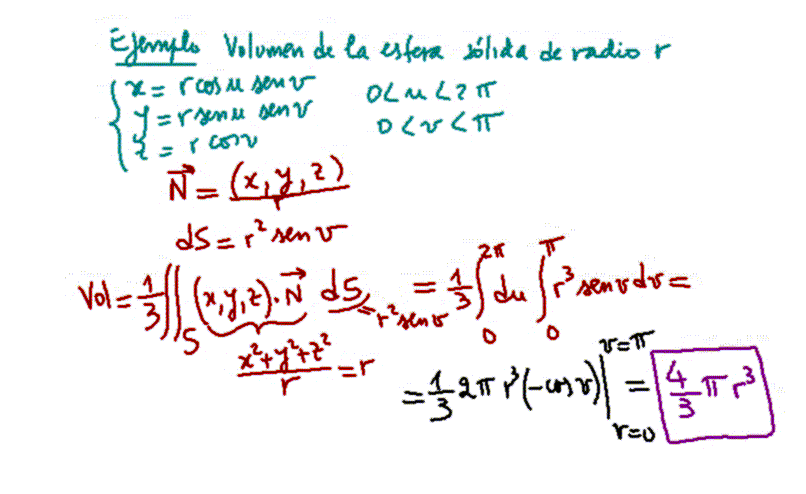 Ejemplo Volumen de la esfera sólida de radio r
x = r cos u sen v    0 < u < 2π
y = r sen u sen v    0 < v < π
z = r cos v
N⃗ = (x, y, z) / r
dS = r² sen v
Vol = 1/3 ∬_S (x, y, z) · N⃗ dS = 1/3 ∫₀^2π du ∫₀^π r³ sen v dv =
= r² sen v
x² + y² + z² / r = r
= 1/3 2π r³ (-cos v) | v=π r=0 = 4/3 π r³